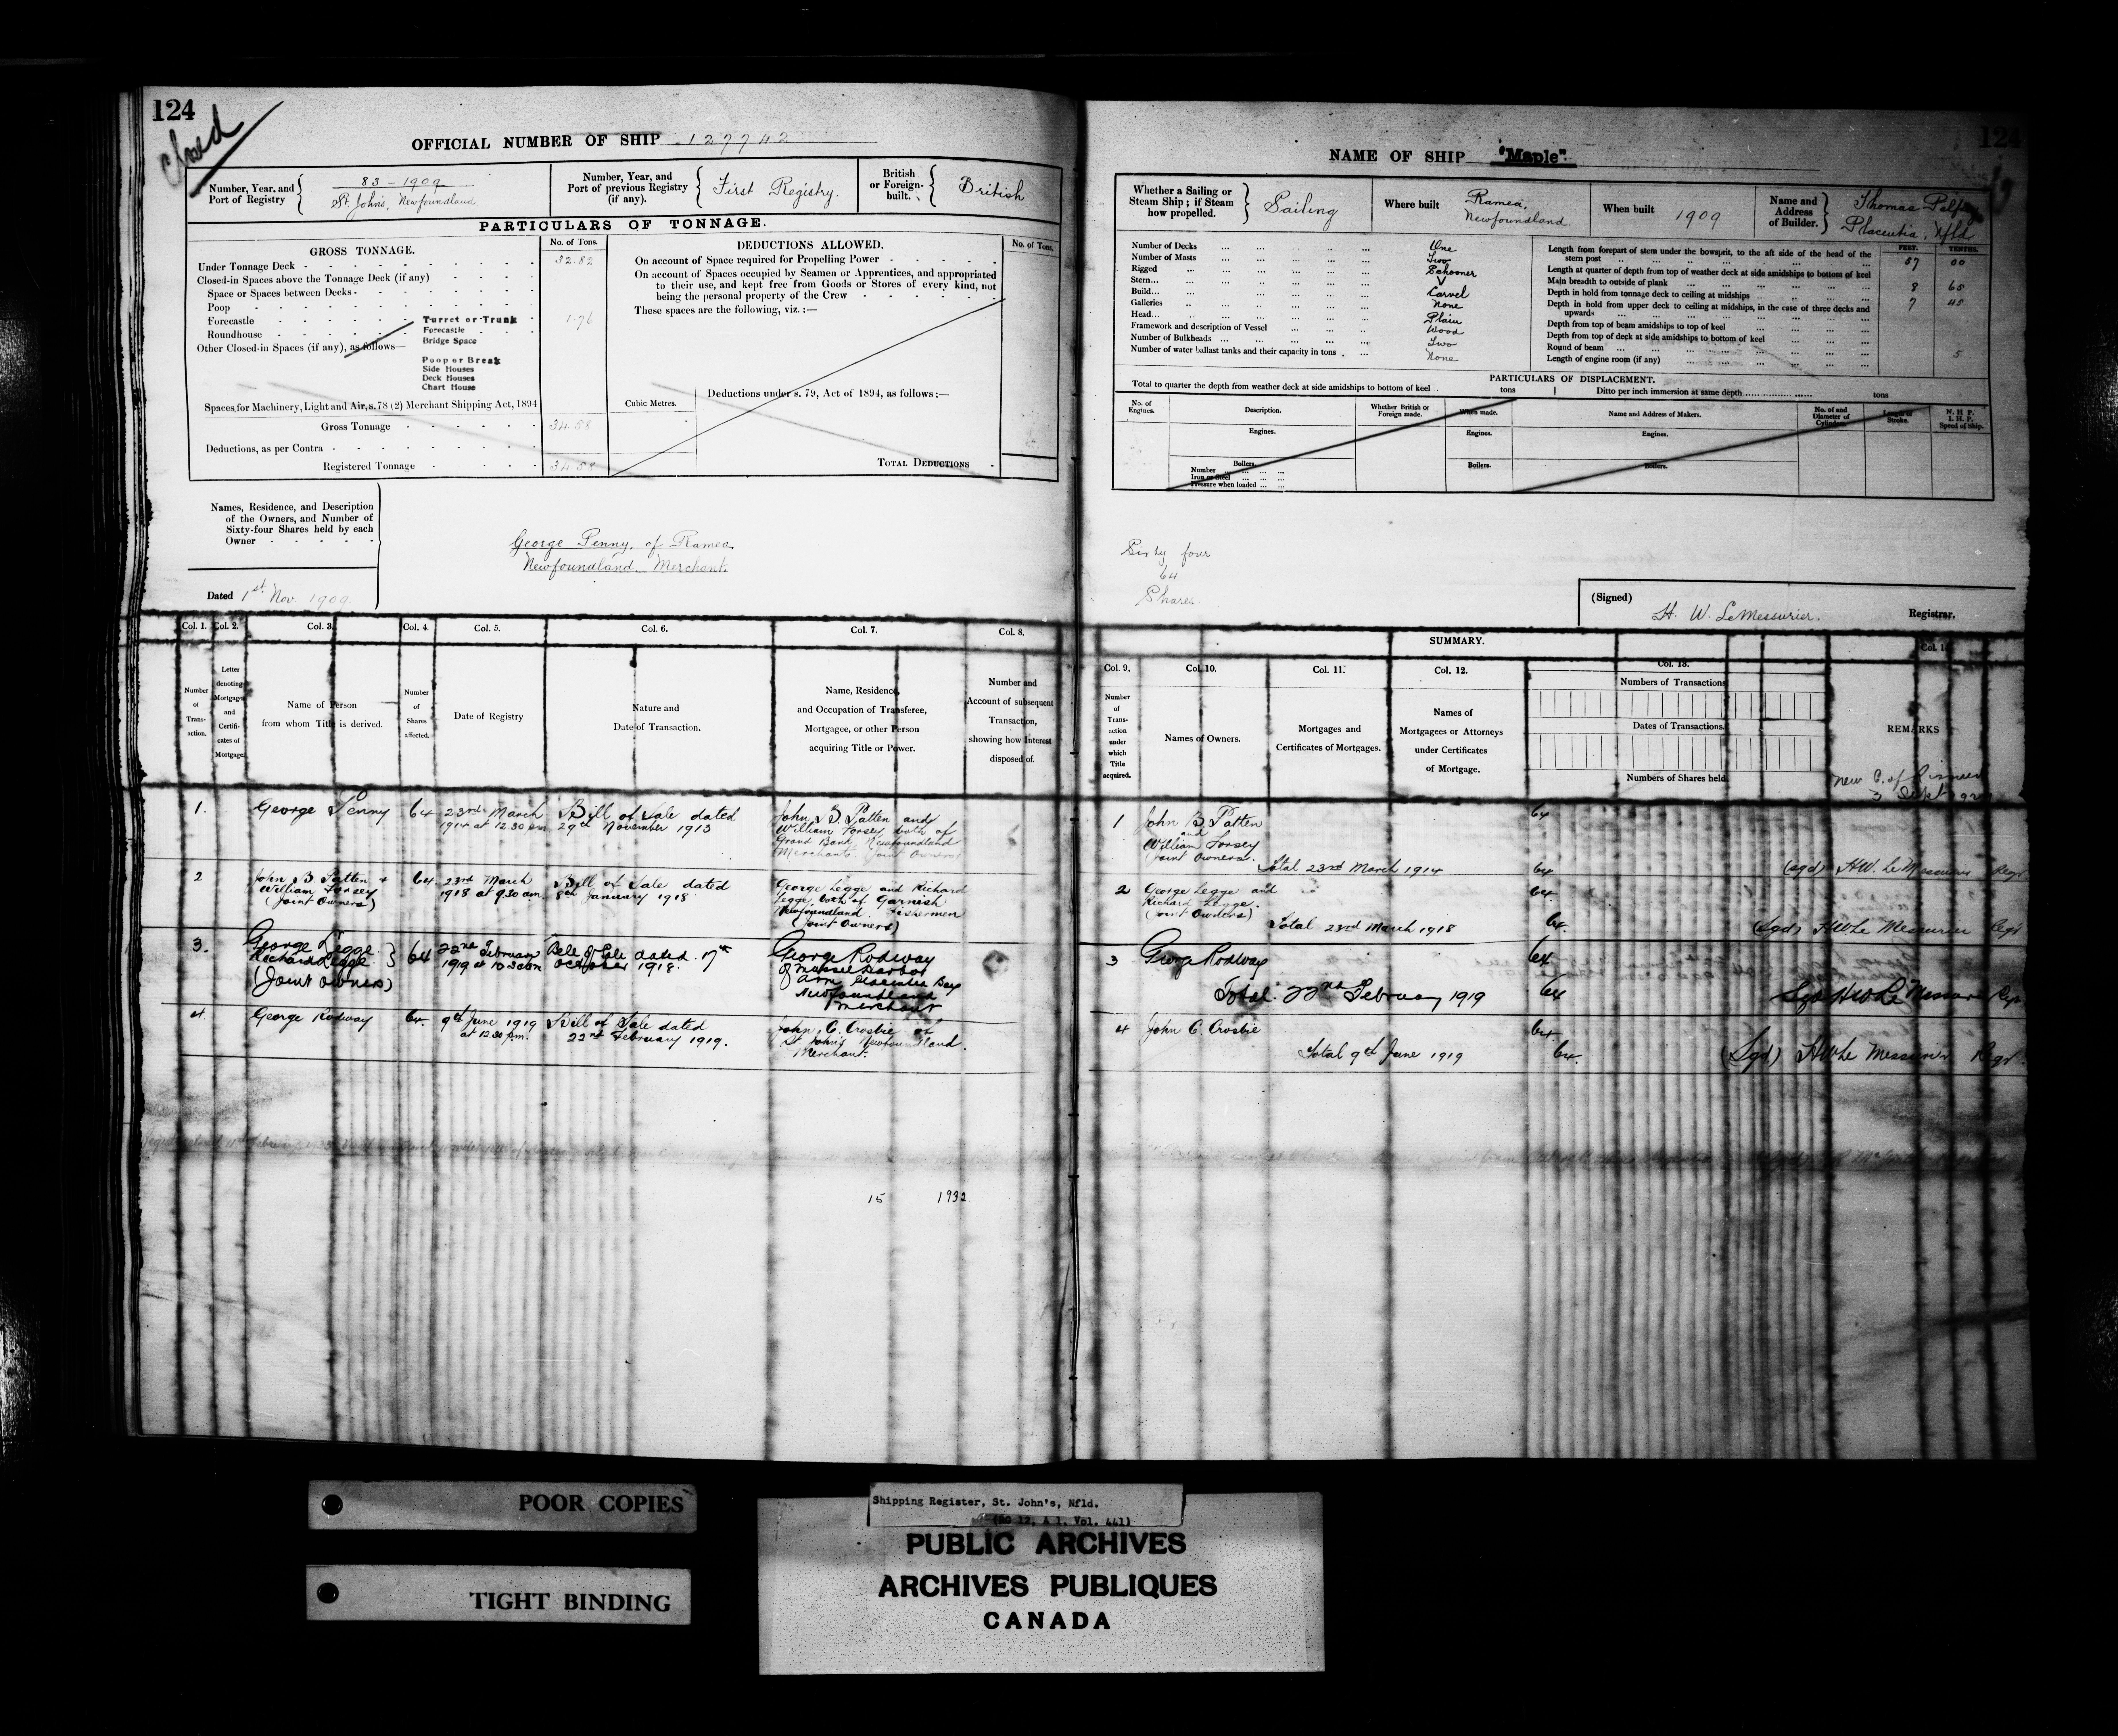 124
Closed
OFFICIAL NUMBER OF SHIP 127742
Number, Year, and Port of Registry
83 - 1909
St. John's, Newfoundland
Number, Year, and Port of previous Registry (if any).
First Registry.
British or Foreign-built.
British
PARTICULARS OF TONNAGE.
GROSS TONNAGE.
No. of Tons.
Under Tonnage Deck 32.82
Closed-in Spaces above the Tonnage Deck (if any)
Space or Spaces between Decks
Poop
Forecastle
Roundhouse
Other Closed-in Spaces (if any), as follows—
Turret or Trunk 1.76
Forecastle
Bridge Space
Poop or Break
Side Houses
Deck Houses
Chart House
Spaces for Machinery, Light and Air, s. 78 (2) Merchant Shipping Act, 1894
Gross Tonnage 34.58
Deductions, as per Contra
Registered Tonnage 34.58
DEDUCTIONS ALLOWED.
No. of Tons.
On account of Space required for Propelling Power
On account of Spaces occupied by Seamen or Apprentices, and appropriated
to their use, and kept free from Goods or Stores of every kind, not
being the personal property of the Crew
These spaces are the following, viz. :—
Cubic Metres.
Deductions under s. 79, Act of 1894, as follows :—
TOTAL DEDUCTIONS
Names, Residence, and Description
of the Owners, and Number of
Sixty-four Shares held by each
Owner
George Penny, of Ramea,
Newfoundland Merchant.
Dated 1st Nov. 1909.
Col. 1. Col. 2. Col. 3. Col. 4. Col. 5. Col. 6. Col. 7. Col. 8.
Number of Transaction.
Letter denoting Mortgages and Certificates of Mortgage.
Name of Person from whom Title is derived.
Number of Shares affected.
Date of Registry
Nature and Date of Transaction.
Name, Residence, and Occupation of Transferee, Mortgagee, or other Person acquiring Title or Power.
Number and Account of subsequent Transaction, showing how Interest disposed of.
1. George Penny 64 23rd March 1914 at 12.30 pm Bill of Sale dated 29th November 1913
John B Patten and
William Forsey both of
Grand Bank Newfoundland
Merchants (Joint Owners)
2 John B. Patten + William Forsey (Joint Owners) 64 23rd March 1918 at 9.30 am Bill of Sale dated 8th January 1918
George Legge and Richard
Legge, both of Garnish
Newfoundland. Fishermen
(Joint Owners)
3. George Legge Richard Legge (Joint Owners) 64 22nd February 1919 at 10.30 am Bill of Sale dated 17th October 1918.
George Rodway
of Mussel Harbor
Arm Placentia Bay
Newfoundland
Merchant
4. George Rodway 64 9th June 1919 at 12.30 p.m. Bill of Sale dated 22nd February 1919.
John C. Crosbie of
St John's Newfoundland.
Merchant.
15 1932
124
NAME OF SHIP "Maple"
Whether a Sailing or Steam Ship ; if Steam how propelled.
Sailing
Where built
Ramea, Newfoundland.
When built
1909
Name and Address of Builder.
Thomas
Placentia, Nfld
Number of Decks One
Number of Masts Two
Rigged Schooner
Stern
Build Carvel
Galleries None
Head Plain
Framework and description of Vessel Wood
Number of Bulkheads Two
Number of water ballast tanks and their capacity in tons None
FEET. TENTHS.
Length from forepart of stem under the bowsprit, to the aft side of the head of the stern post 57 00
Length at quarter of depth from top of weather deck at side amidships to bottom of keel
Main breadth to outside of plank
Depth in hold from tonnage deck to ceiling at midships
Depth in hold from upper deck to ceiling at midships, in the case of three decks and upwards
Depth from top of beam amidships to top of keel
Depth from top of deck at side amidships to bottom of keel
Round of beam 5
Length of engine room (if any)
PARTICULARS OF DISPLACEMENT.
Total to quarter the depth from weather deck at side amidships to bottom of keel tons
Ditto per inch immersion at same depth tons
No. of Engines.
Description.
Whether British or Foreign made.
When made.
Name and Address of Makers.
No. of and Diameter of Cylinders.
Length of Stroke.
N. H. P.
I. H. P.
Speed of Ship.
Engines. Engines. Engines.
Boilers. Boilers. Boilers.
Number
Iron or Steel
Pressure when loaded
Sixty four
64
Shares.
(Signed) H. W. LeMessurier. Registrar.
SUMMARY.
Col. 9. Col. 10. Col. 11. Col. 12. Col. 13. Col. 14
Number of Transaction under which Title acquired.
Names of Owners.
Mortgages and Certificates of Mortgages.
Names of Mortgagees or Attorneys under Certificates of Mortgage.
Numbers of Transactions
Dates of Transactions.
Numbers of Shares held
REMARKS
1 John B. Patten and William Forsey (Joint Owners. 64
Total 23rd March 1914 64 (sgd) H W. Le Messurier Regr
2 George Legge and Richard Legge. (Joint Owners) 64
Total 23rd March 1918 64 (Sgd) H W Le Messurier Regr
3 George Rodway 64
Total 22nd February 1919 64 Sgd H W Le Messurier Regr
4 John C. Crosbie 64
Total 9th June 1919 64 (Sgd) H W Le Messurier Regr
POOR COPIES
TIGHT BINDING
Shipping Register, St. John's, Nfld.
(RG 12, A 1, Vol. 441)
PUBLIC ARCHIVES
ARCHIVES PUBLIQUES
CANADA